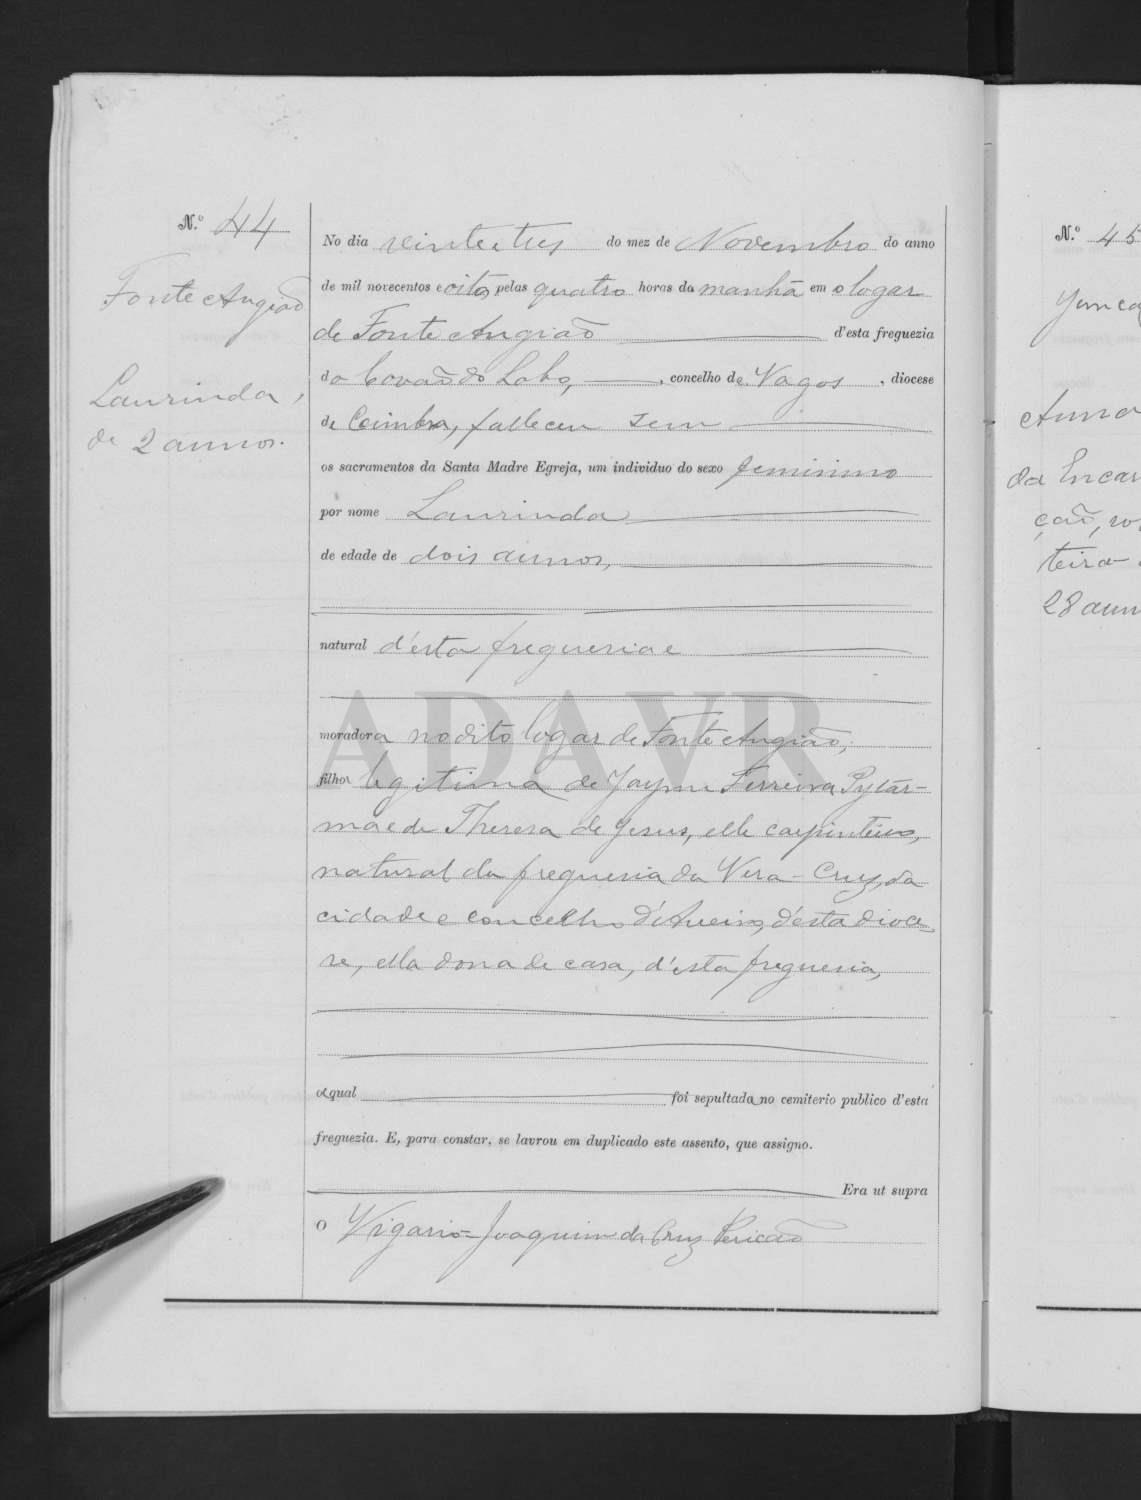 N.º 44
Fonte Angião
Laurinda,
de 2 annos.
No dia vinte e tres do mez de Novembro do anno
de mil novecentos e oito, pelas quatro horas da manhã em o logar
de Fonte Angião d'esta freguezia
do Covão do Lobo, concelho de Vagos, diocese
de Coimbra, falleceu sem
os sacramentos da Santa Madre Egreja, um individuo do sexo feminino
por nome Laurinda
de edade de dois annos,
natural d'esta freguesia e
moradora no dito logar de Fonte Angião,
filha legitima de Jayme Ferreira
e de Theresa de Jesus, elle carpinteiro,
natural da freguesia da Vera-Cruz, da
cidade e concelho d'Aveiro, d'esta dioce-
se, ella dona de casa, d'esta freguesia,
a qual foi sepultada no cemiterio publico d'esta
freguezia. E, para constar, se lavrou em duplicado este assento, que assigno.
Era ut supra
O Vigario Joaquim da Cruz Pericão
ADAVR
N.º 45
Anna
da Encar
ção, sol
teira
28 ann